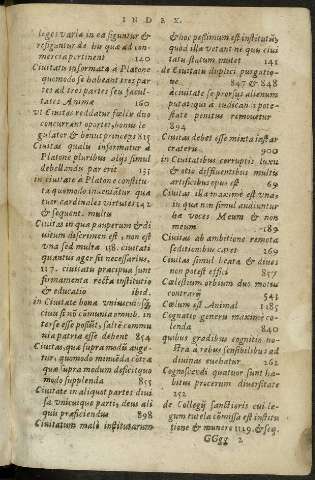 INDEX
leges varia in ea figuntur &
refiguntur de his quæ ad com
mercia pertinent 140
Ciuitatu informata à Platone
quomodo se habeant tres par
tes ad tres partes seu facul-
tates Animæ 160
vt Ciuitas reddatur fœlix duo
concurrant oportet, bonus le
gulator & bonus princeps 815
Ciuitas qualis informatur à
Platone pluribus aliis simul
debellandis par erit 135
in ciuitate à Platone constitu
ta quomodo inueniātur qua
tuor cardinales virtutes 142
& sequent. multis
Ciuitas in qua pauperum & di
uitum discrimen est, non est
vna sed multæ 138. ciuitati
quantus ager sit necessarius,
117. ciuitatis præcipua sunt
firmamenta recta institutio
& educatio ibid.
in Ciuitate bona vnicuiusq;
ciuis si nō omnia omnib. in-
ter se esse possūt, saltē commu
nia patria esse debent 854
Ciuitas, qua supra modū auge-
tur, quomodo minuēda cōtra
quæ supra modum deficit quo
modo supplenda 855
Ciuitate in aliquot partes diui
sa vnicuique parti, deus ali
quis præficiendus 898
Ciuitatum malè institutarum
& hoc pessimum est institutū,
quod illa vetant ne quis ciui
tatis statum mutet 141
de Ciuitatis duplici purgatio-
ne 847 & 848
à ciuitate se prorsus alienum
putat quis à iudicandi pote-
state penitus remouetur
894
Ciuitas debet esse mixta instar
crateris 900
in Ciuitatibus corruptis luxu
& otio diffluentibus multis
artificibus opus est 69
Ciuitas illa maximè est vna,
in qua non simul audiuntur
hæ voces Meum & non
meum 189
Ciuitas ab ambitione remota
seditionibus caret 269
Ciuitas simul beata & diues
non potest effici 857
Cœlestium orbium duo motus
contrarii 541
Cœlum est Animal 1185
Cognatio generis maximè co-
lenda 840
quibus gradibus cognitio no-
stra à rebus sensibilibus ad
diuinas euehatur 262
Cognoscēdi quatuor sunt ha-
bitus pro rerum diuersitate
252
de Collegij sanctioris cui le-
gum tutela cōmissa est institu
tione & munere 1129. & seq.
GGgg 2